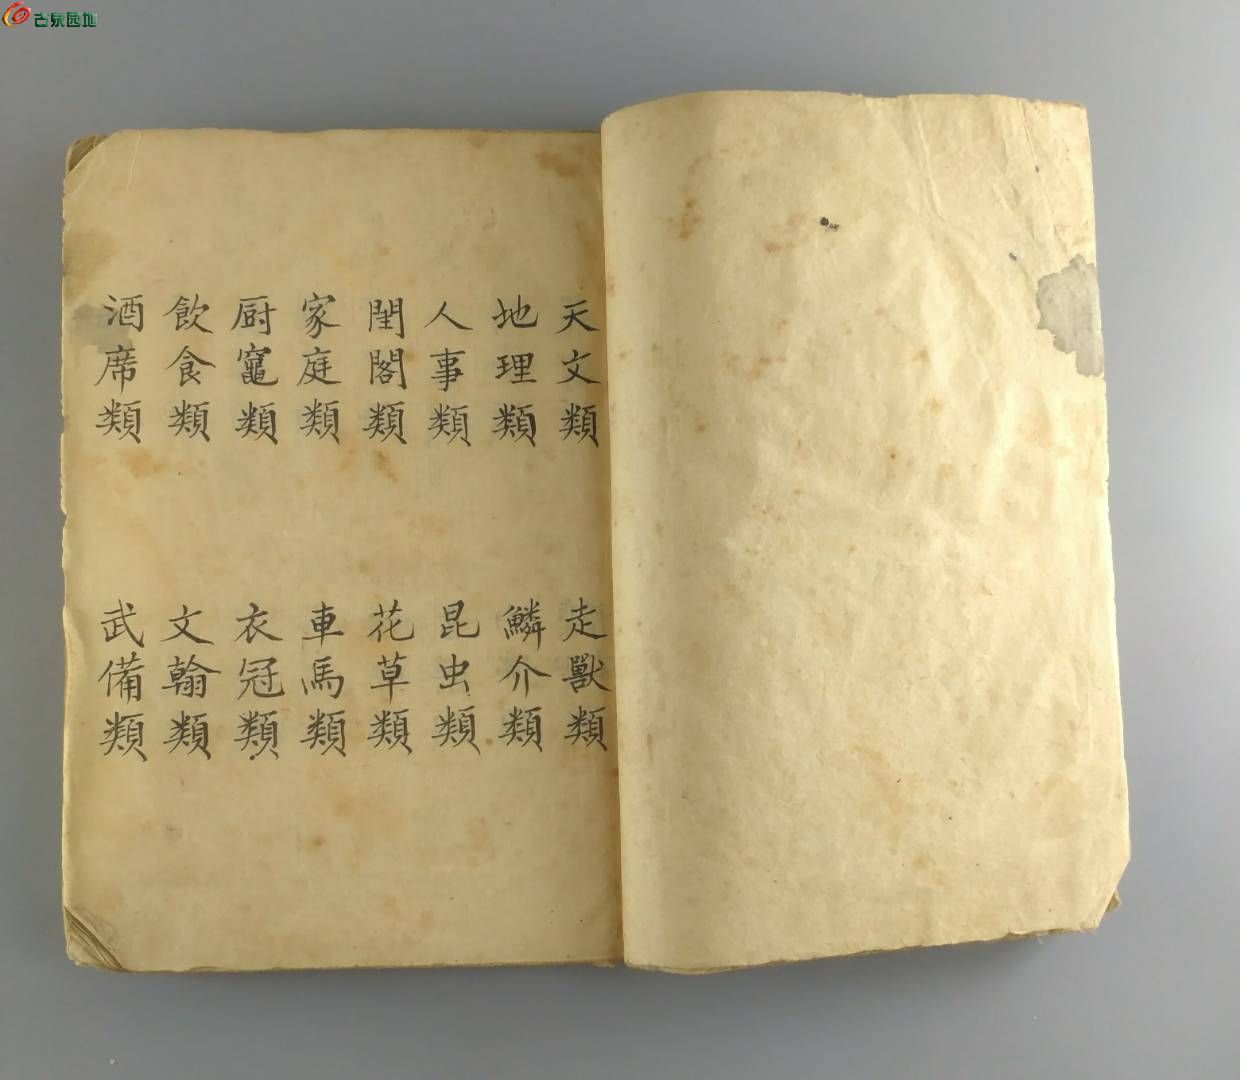 古泉园地
天文類
地理類
人事類
閨閣類
家庭類
厨竈類
飲食類
酒席類
走獸類
鱗介類
昆虫類
花草類
車馬類
衣冠類
文翰類
武備類